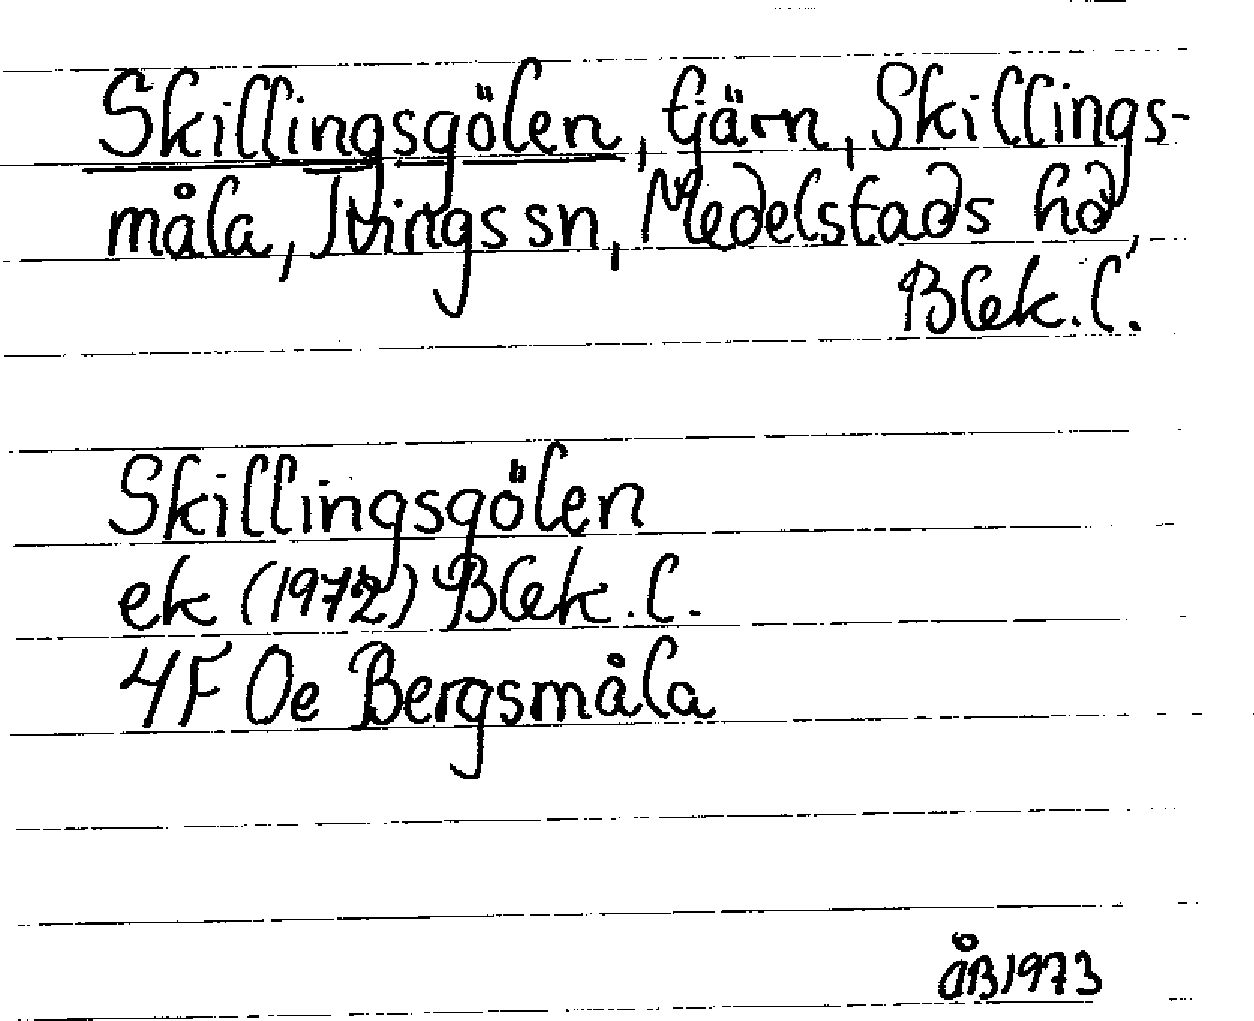 Skillingsgölen, tjärn, Skillings-
måla, Tvings sn, Medelstads hd,
Blek.l.
Skillingsgölen
ek (1972) Blek.l.
4F Oe Bergsmåla
ÅB 1973